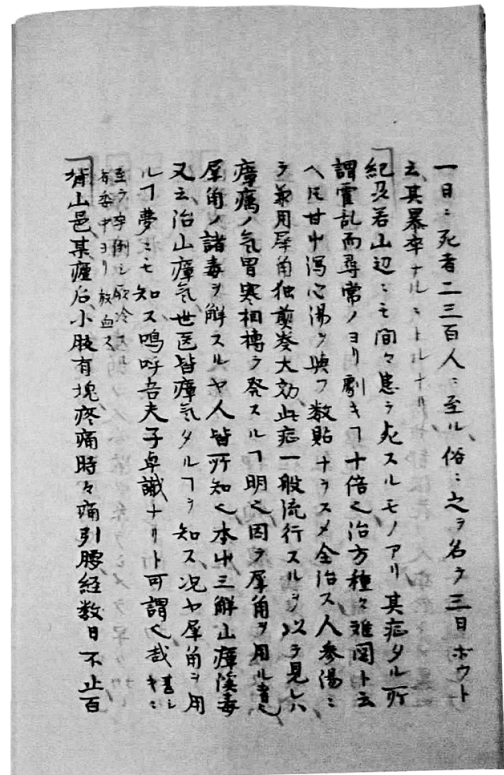 一日ニ死者二三百人ニ至ル俗ニ之ヲ名テ三日ボウト
云其暴卒ナルニトルナリ
紀及若山辺ニモ間々患テ死スルモノアリ其症タル所
謂霍乱而尋常ノヨリ劇キヿ十倍也治方種々雖図ト云
ヘ𪜈甘中瀉心湯ヲ與フ数貼ナラスメ全治ス人参湯ニ
テ兼用犀角独煎奏大効此症一般流行スルヲ以テ見レハ
瘴癘ノ気冒寒相搆テ発スルヿ明也因テ犀角ヲ用ル者也
犀角ノ諸毒ヲ解スルヤ人皆所知也本中三解山瘴渓毒
又云治山瘴気世医皆瘴気タルヿヲ知ス况ヤ犀角ヲ用
ルヿ夢ニモ知ス嗚呼吾夫子卓識ナリト可謂也哉甚シ
至テ卒倒シ厥冷スル
者委中ヨリ放血ス
背山邑某瘧后小腹有塊疼痛時々痛引腰経数日不止百